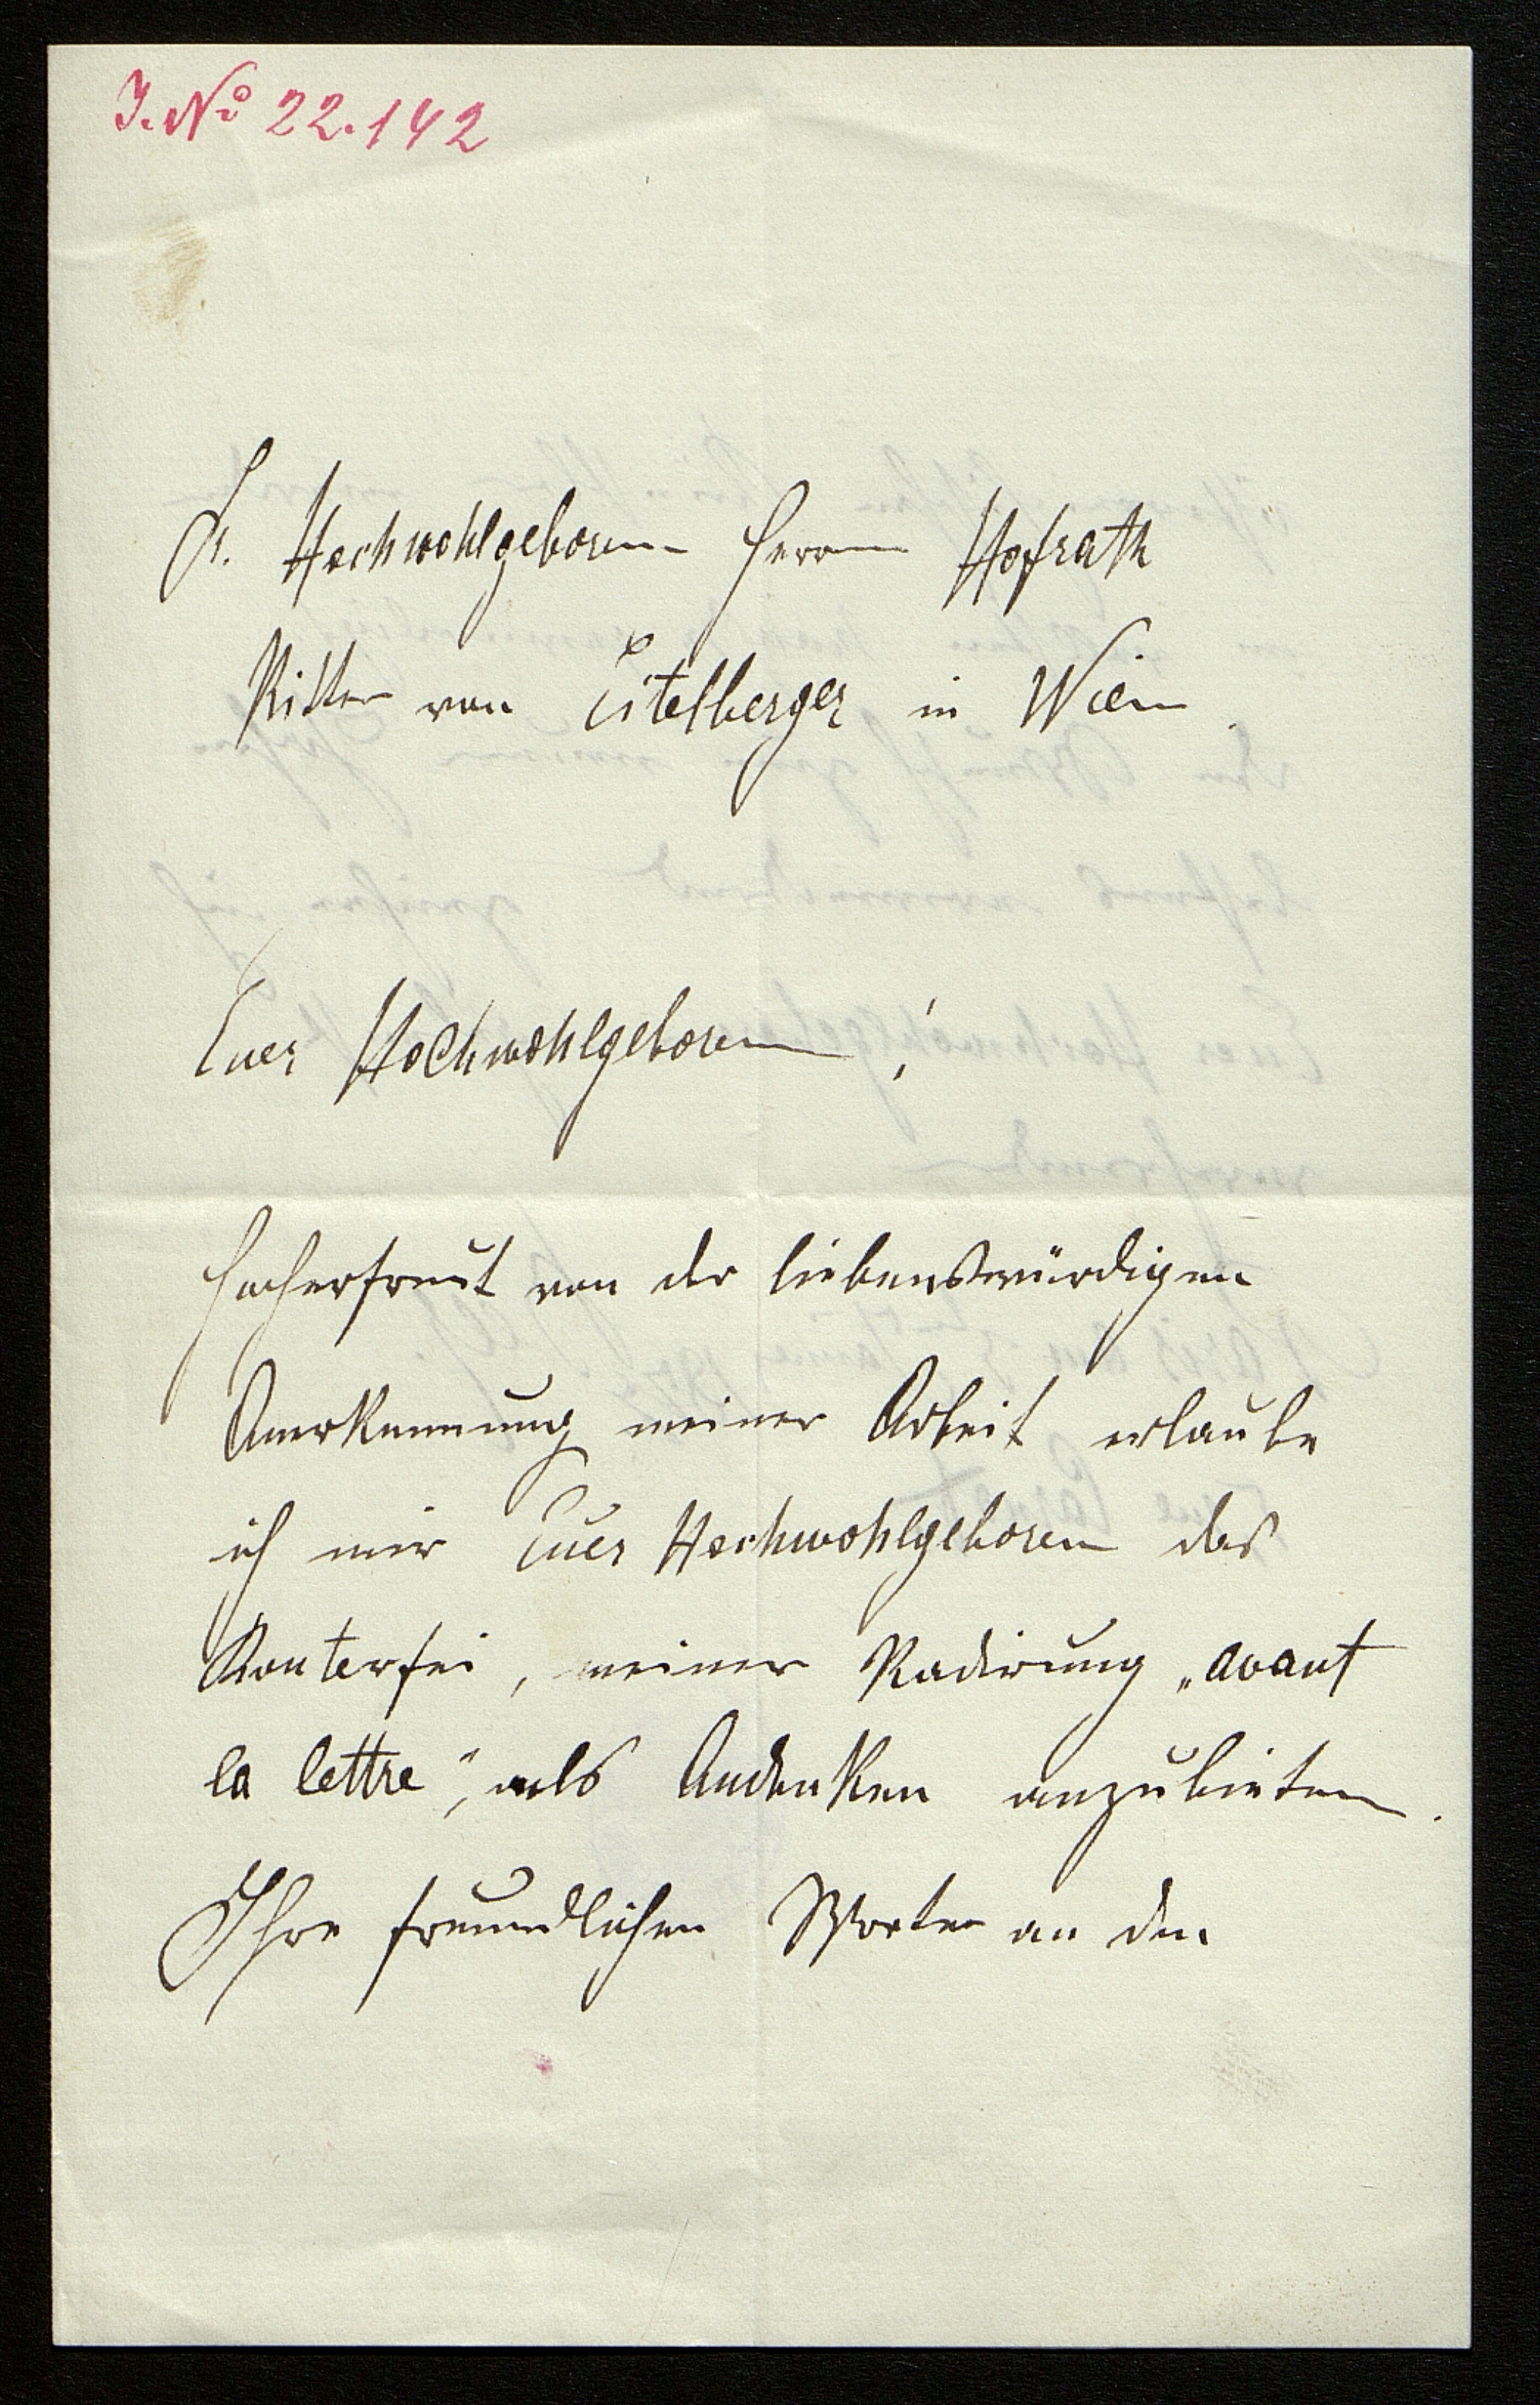 J. No 22.142
Sr. Hochwohlgeboren Herrn Hofrath
Ritter von Eitelberger in Wien.
Euer Hochwohlgeboren!
Hocherfreut von der liebenswürdigen
Anerkennung meiner Arbeit erlaube
ich mir Euer Hochwohlgeboren das
Konterfei, meiner Radirung „avant
la lettre“, als Andenken anzubieten.
Ihre freundlichen Worte an den